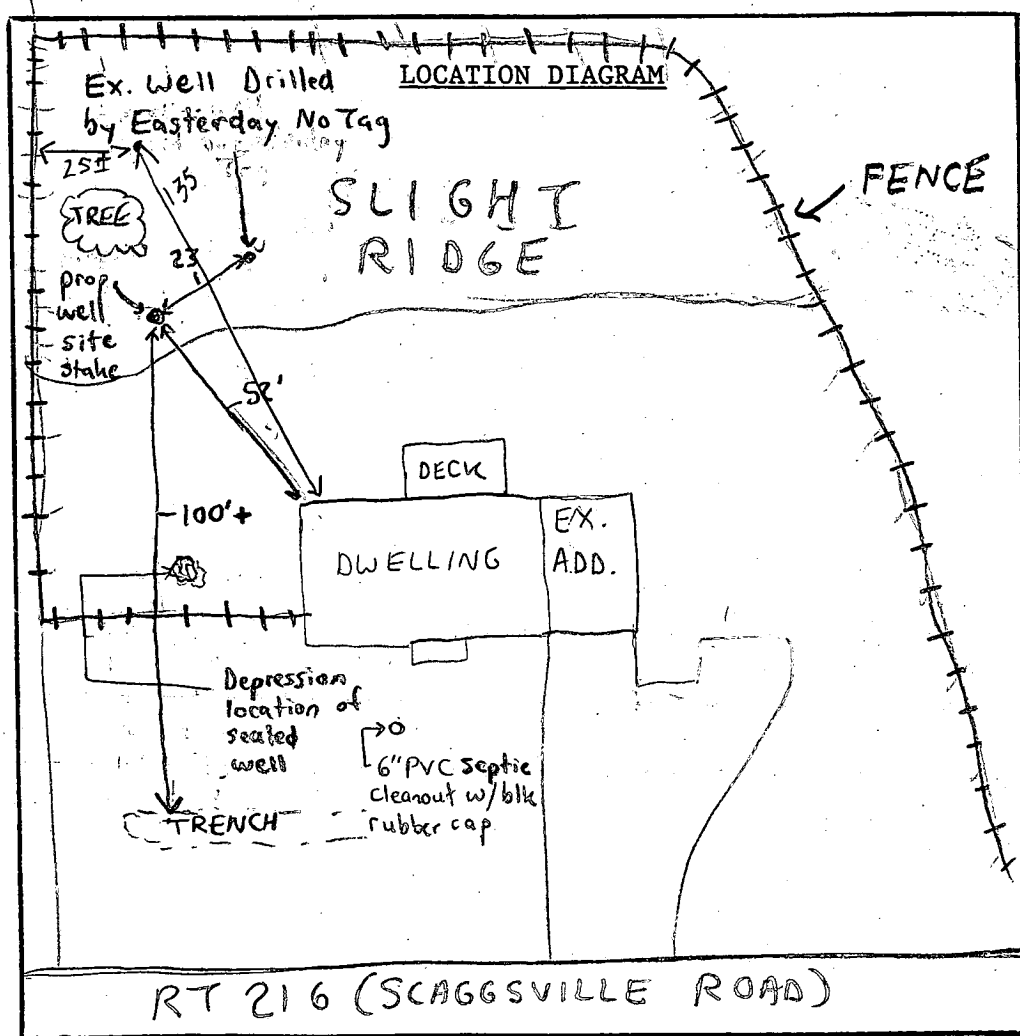 LOCATION DIAGRAM
Ex. Well Drilled
by Easterday No Tag
25±
135
TREE
SLIGHT
RIDGE
FENCE
23'
prop
well
site
stake
52'
DECK
100'+
DWELLING
EX.
ADD.
Depression
location of
sealed
well
6" PVC septic
cleanout w/blk
rubber cap
TRENCH
RT 216 (SCAGGSVILLE ROAD)